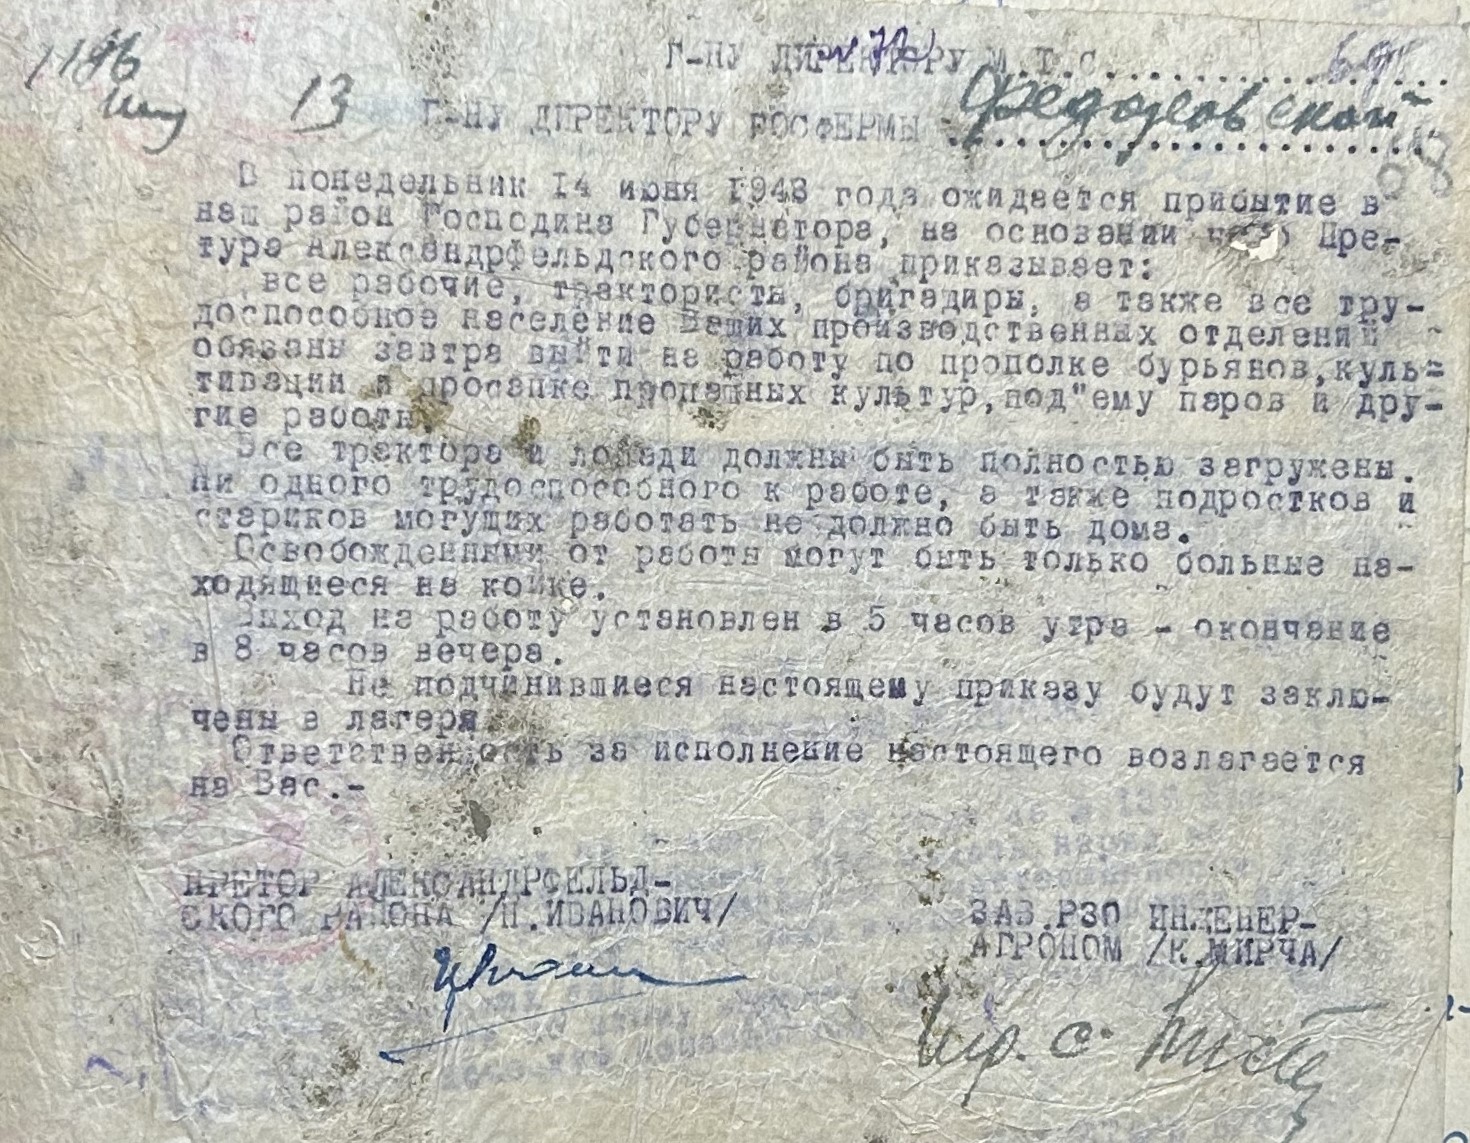 1196
13
Г-НУ ДИРЕКТОРУ М.Т.С.
Г-НУ ДИРЕКТОРУ ГОСФЕРМЫ Федоровской
В понедельник 14 июня 1943 года ожидается прибытие в
наш район Господина Губернатора, на основании Пре-
тура Александрфельдского района приказывает:
все рабочие, трактористы, бригадиры, а также все тру-
доспособное население Ваших производственных отделений
обязаны завтра выйти на работу по прополке бурьянов,куль-
тивации и просапке пропашных культур,под"ему паров и дру-
гие работы.
Все трактора и лошади должны быть полностью загружены.
Ни одного трудоспособного к работе, а также подростков и
стариков могущих работать не должно быть дома.
Освобожденными от работы могут быть только больные на-
ходящиеся на койке.
Выход на работу установлен в 5 часов утра - окончание
в 8 часов вечера.
Не подчинившиеся настоящему приказу будут заклю-
чены в лагеря.
Ответственность за исполнение настоящего возлагается
на Вас.-
ПРЕТОР АЛЕКСАНДРФЕЛЬД-
СКОГО РАЙОНА /Н.ИВАНОВИЧ/
ЗАВ.РЗО ИНЖЕНЕР-
АГРОНОМ /К.МИРЧА/